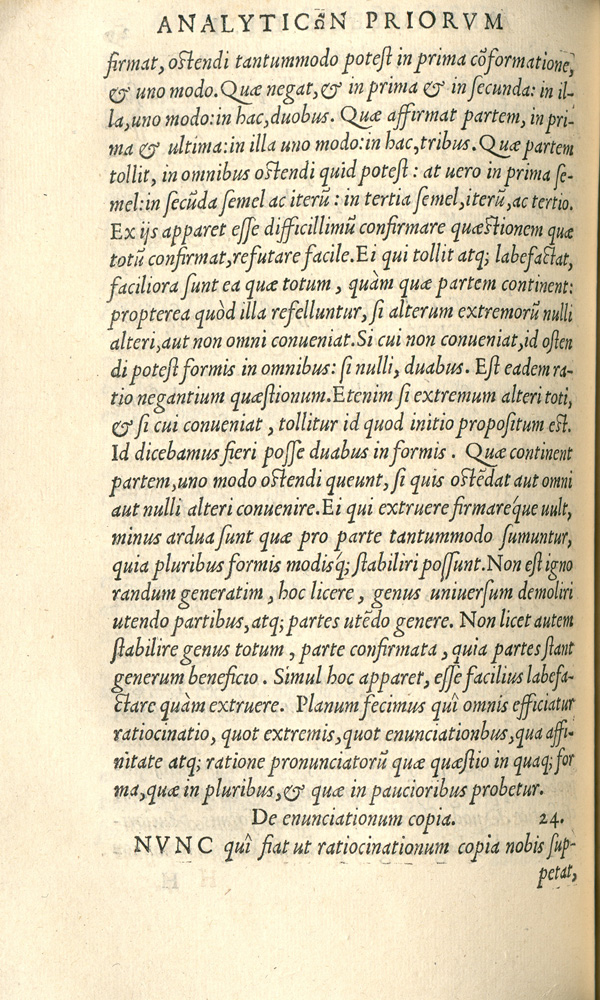 ANALYTICῶN PRIORVM
firmat, ostendi tantummodo potest in prima cõformatione,
& uno modo. Quæ negat, & in prima & in secunda: in il-
la, uno modo: in hac, duobus. Quæ affirmat partem, in pri-
ma & ultima: in illa uno modo: in hac, tribus. Quæ partem
tollit, in omnibus ostendi quid potest: at uero in prima se-
mel: in secũda semel ac iterũ: in tertia semel, iterũ, ac tertio.
Ex ijs apparet esse difficillimũ confirmare quæstionem quæ
totũ confirmat, refutare facile. Ei qui tollit atq; labefactat,
faciliora sunt ea quæ totum, quàm quæ partem continent:
propterea quòd illa refelluntur, si alterum extremorũ nulli
alteri, aut non omni conueniat. Si cui non conueniat, id osten
di potest formis in omnibus: si nulli, duabus. Est eadem ra-
tio negantium quæstionum. Etenim si extremum alteri toti,
& si cui conueniat, tollitur id quod initio propositum est.
Id dicebamus fieri posse duabus in formis. Quæ continent
partem, uno modo ostendi queunt, si quis ostẽdat aut omni
aut nulli alteri conuenire. Ei qui extruere firmareq́ue uult,
minus ardua sunt quæ pro parte tantummodo sumuntur,
quia pluribus formis modisq́; stabiliri possunt. Non est igno
randum generatim, hoc licere, genus uniuersum demoliri
utendo partibus, atq; partes utẽdo genere. Non licet autem
stabilire genus totum, parte confirmata, quia partes stant
generum beneficio. Simul hoc apparet, esse facilius labefa-
ctare quàm extruere. Planum fecimus quî omnis efficiatur
ratiocinatio, quot extremis, quot enunciationbus, qua affi-
nitate atq; ratione pronunciatorũ quæ quæstio in quaq; for
ma, quæ in pluribus, & quæ in paucioribus probetur.
De enunciationum copia. 24.
NVNC quî fiat ut ratiocinationum copia nobis sup-
petat,